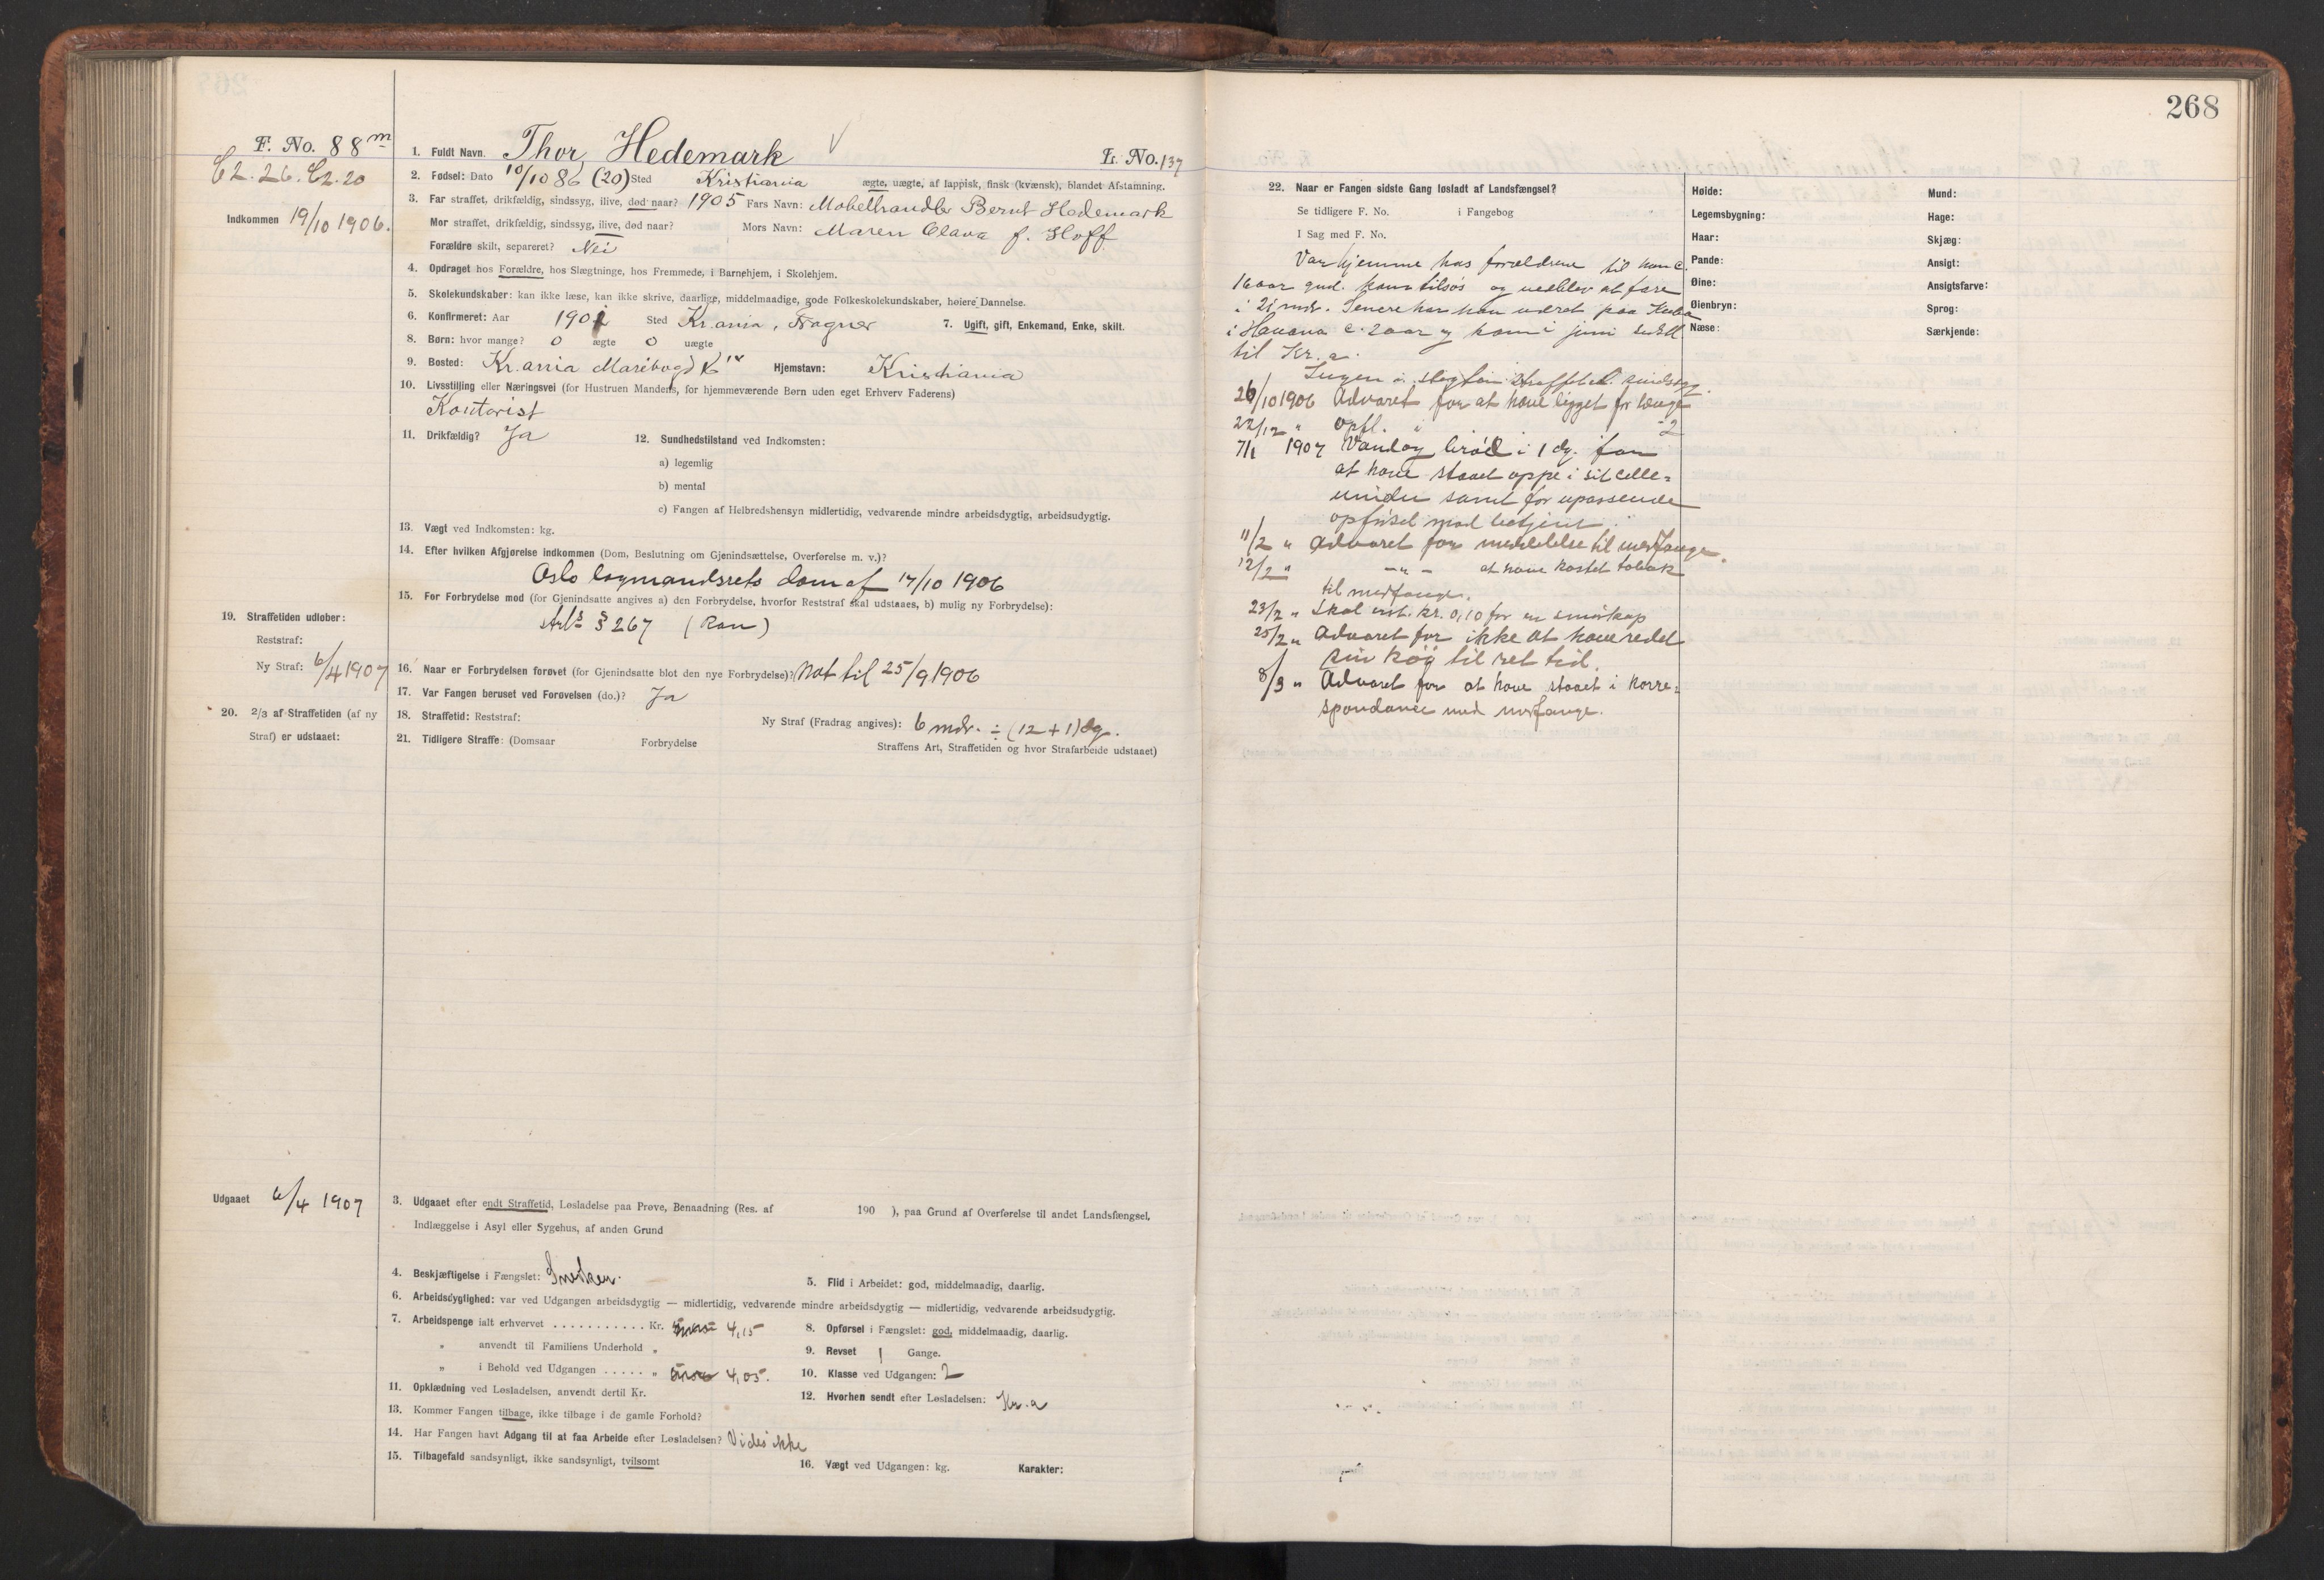 268
F. No. 88 m
C2.26. C2.20
Indkommen 19/10 1906.
1. Fuldt Navn. Thor Hedemark V L. No. 137
2. Fødsel: Dato 10/10 86 (20) Sted Kristiania ægte, uægte, af lappisk, finsk (kvænsk), blandet Afstamning.
3. Far straffet, drikfældig, sindssyg, ilive, død naar? 1905 Fars Navn: Møbelhandler Bernt Hedemark
Mor straffet, drikfældig, sindssyg, ilive, død naar? Mors Navn: Maren Olava f. Hoff
Forældre skilt, separeret? Nei
4. Opdraget hos Forældre, hos Slægtninge, hos Fremmede, i Barnehjem, i Skolehjem.
5. Skolekundskaber: kan ikke læse, kan ikke skrive, daarlige, middelmaadige, gode Folkeskolekundskaber, høiere Dannelse.
6. Konfirmeret: Aar 1901 Sted Kr.ania, Fragner 7. Ugift, gift, Enkemand, Enke, skilt.
8. Børn: hvor mange? 0 ægte 0 uægte
9. Bosted: Kr.ania Maribogd Hjemstavn: Kristiania
10. Livsstilling eller Næringsvei (for Hustruen Mandens, for hjemmeværende Børn uden eget Erhverv Faderens)
Kontorist
11. Drikfældig? Ja 12. Sundhedstilstand ved Indkomsten:
a) legemlig
b) mental
c) Fangen af Helbredshensyn midlertidig, vedvarende mindre arbeidsdygtig, arbeidsudygtig.
13. Vægt ved Indkomsten: kg.
14. Efter hvilken Afgjørelse indkommen (Dom, Beslutning om Gjenindsættelse, Overførelse m. v.)?
Oslo lagmandsrets dom af 17/10 1906
15. For Forbrydelse mod (for Gjenindsatte angives a) den Forbrydelse, hvorfor Reststraf skal udstaaes, b) mulig ny Forbrydelse):
Strl's § 267 (Ran)
19. Straffetiden udløber:
Reststraf:
Ny Straf: 6/4 1907
16. Naar er Forbrydelsen forøvet (for Gjenindsatte blot den nye Forbrydelse)? Nat til 25/9 1906
17. Var Fangen beruset ved Forøvelsen (do.)? Ja
20. 2/3 af Straffetiden (af ny
Straf) er udstaaet:
18. Straffetid: Reststraf: Ny Straf (Fradrag angives): 6 mdr. ÷ (12 + 1) dg.
21. Tidligere Straffe: (Domsaar Forbrydelse Straffens Art, Straffetiden og hvor Strafarbeide udstaaet)
Udgaaet 6/4 1907
3. Udgaaet efter endt Straffetid, Løsladelse paa Prøve, Benaadning (Res. af 190 ), paa Grund af Overførelse til andet Landsfængsel,
Indlæggelse i Asyl eller Sygehus, af anden Grund
4. Beskjæftigelse i Fængslet: Snekker. 5. Flid i Arbeidet: god, middelmaadig, daarlig.
6. Arbeidsdygtighed: var ved Udgangen arbeidsdygtig — midlertidig, vedvarende mindre arbeidsdygtig — midlertidig, vedvarende arbeidsudygtig.
7. Arbeidspenge ialt erhvervet . . . . . . . . . . . Kr. 4,15 8. Opførsel i Fængslet: god, middelmaadig, daarlig.
" anvendt til Familiens Underhold " 9. Revset 1 Gange.
" i Behold ved Udgangen . . . . . " 4,05. 10. Klasse ved Udgangen: 2
11. Opklædning ved Løsladelsen, anvendt dertil Kr. 12. Hvorhen sendt efter Løsladelsen: Kr.a
13. Kommer Fangen tilbage, ikke tilbage i de gamle Forhold?
14. Har Fangen havt Adgang til at faa Arbeide efter Løsladelsen? Vides ikke
15. Tilbagefald sandsynligt, ikke sandsynligt, tvilsomt 16. Vægt ved Udgangen: kg. Karakter:
22. Naar er Fangen sidste Gang løsladt af Landsfængsel?
Se tidligere F. No. i Fangebog
I Sag med F. No.
Var hjemme hos forældrene til han c.
16 aar gml. kom tilsjøs og vedblev at fare
i 21 mdr. Senere har han været paa Kuba
i Havana c. 2 aar og kom i juni
til Kr.a.
Ingen i slegten straffet el. sindssyg.
26/10 1906 Advaret for at have ligget for længe
22/12 " opfl. " 2
7/1 1907 Vand og brød i 1 dg. for
at have staaet oppe i sit celle-
vindu samt for upassende
opførsel mod betjent.
11/2 " Advaret for meddelelse til medfange.
12/2 " -"- at have kastet tobak
til medfange.
23/2 " Skal erst. kr. 0,10 for en smørkop
25/2 " Advaret for ikke at have redet
sin køj til ret tid.
8/3 " Advaret for at have staaet i korre-
spondance med medfange.
Høide: Mund:
Legemsbygning: Hage:
Haar: Skjæg:
Pande: Ansigt:
Øine: Ansigtsfarve:
Øienbryn: Sprog:
Næse: Særkjende: